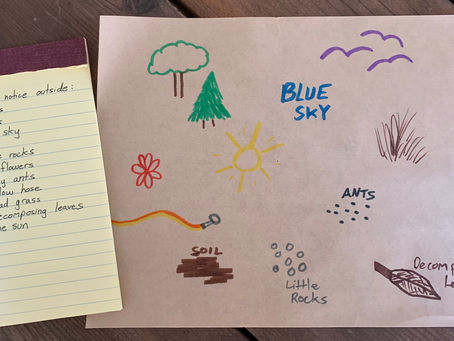 notice outside:
sky
rocks
flowers
ants
hose
grass
decomposing leaves
sun
BLUE
SKY
ANTS
SOIL
Little
Rocks